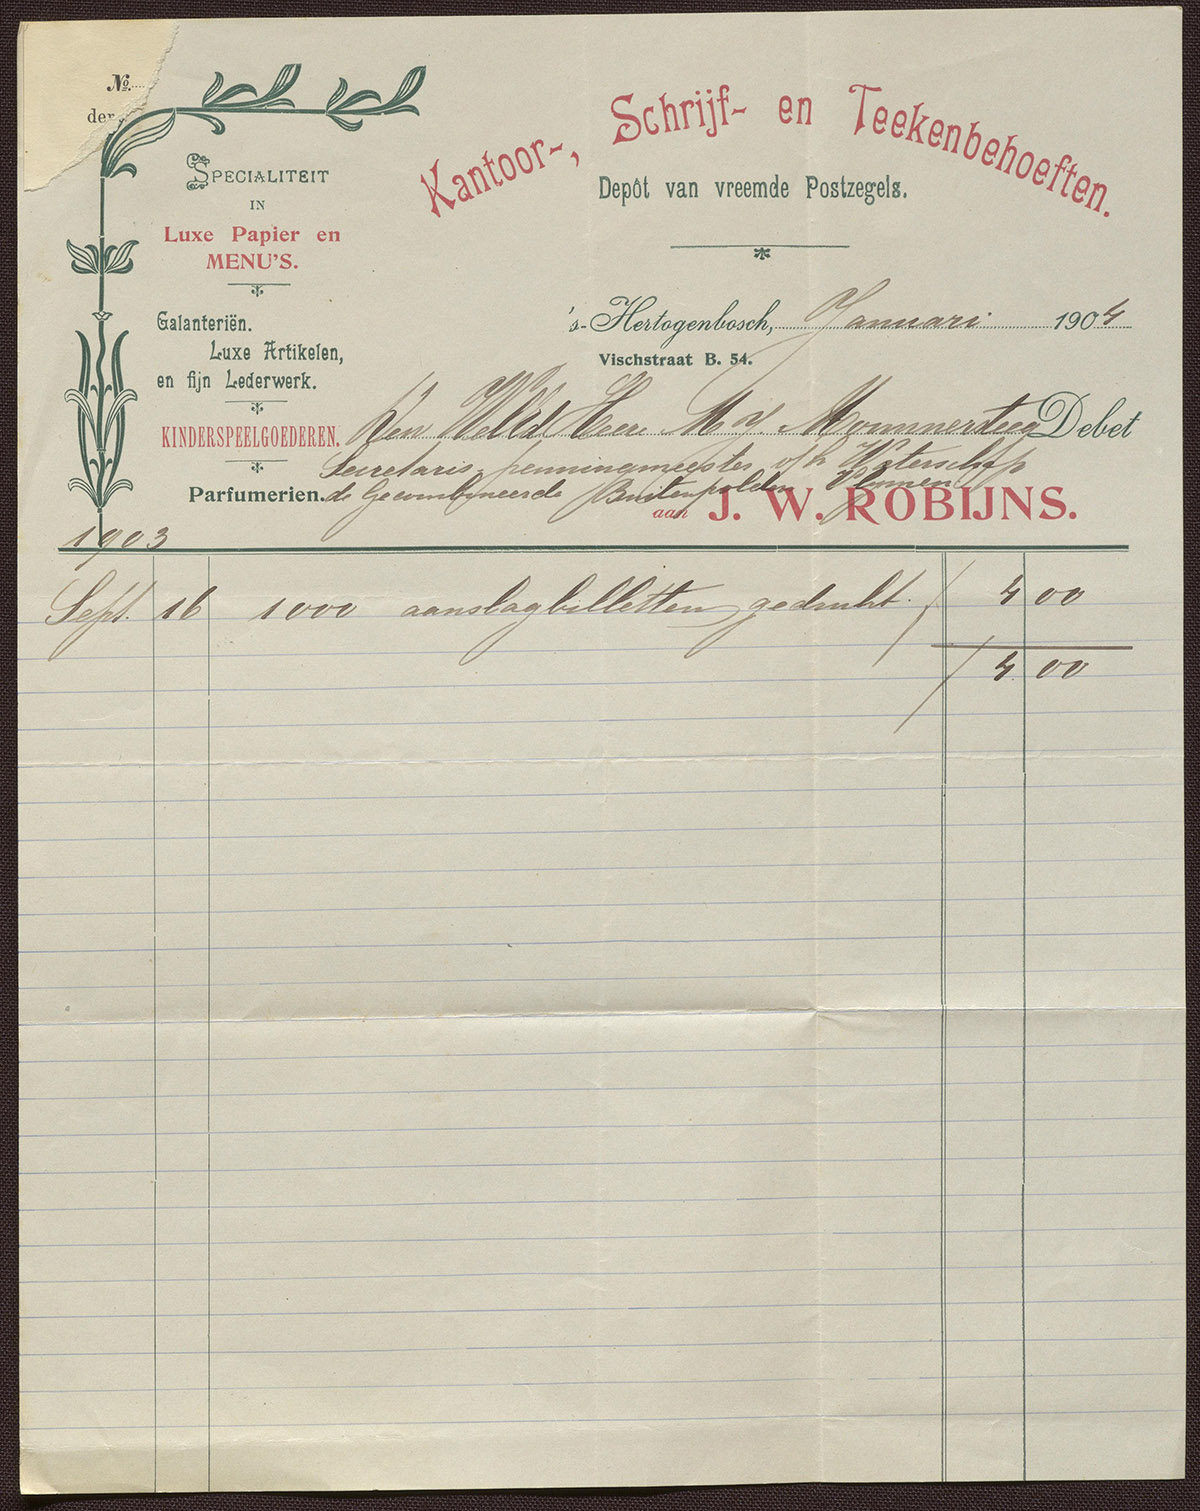 No.
der
Kantoor-, Schrijf- en Teekenbehoeften.
Depôt van vreemde Postzegels.
SPECIALITEIT
IN
Luxe Papier en
MENU'S.
Galanteriën.
Luxe Artikelen,
en fijn Lederwerk.
KINDERSPEELGOEDEREN.
Parfumerien.
's-Hertogenbosch, Januari 1904
Vischstraat B. 54.
Den WelEd Heere M V. Mommersteeg Debet
Secretaris, penningmeester v/h Waterschap
de Gecombineerde Buitenpolder Vlymen
aan J. W. ROBIJNS.
1903
Sept. 16 1000 aanslagbilletten gedrukt. / 4 00
/ 4. 00